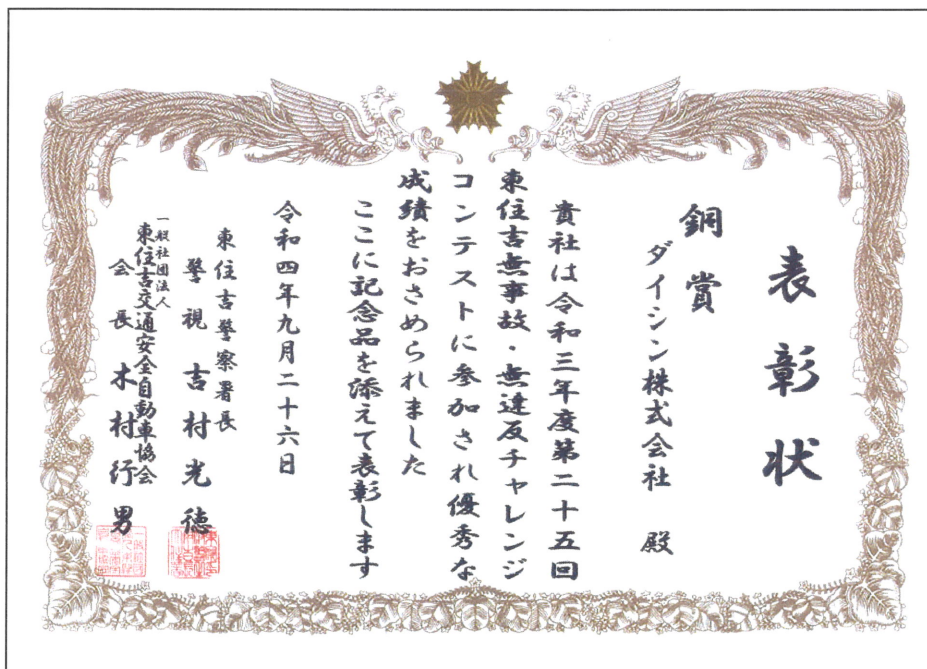 表彰状
銅賞
ダイシン株式会社 殿
貴社は令和三年度第二十五回
東住吉無事故・無違反チャレンジ
コンテストに参加され優秀な
成績をおさめられました
ここに記念品を添えて表彰します
令和四年九月二十六日
東住吉警察署長
警視 吉村光徳
一般社団法人
東住吉交通安全自動車協会
会長 木村行男